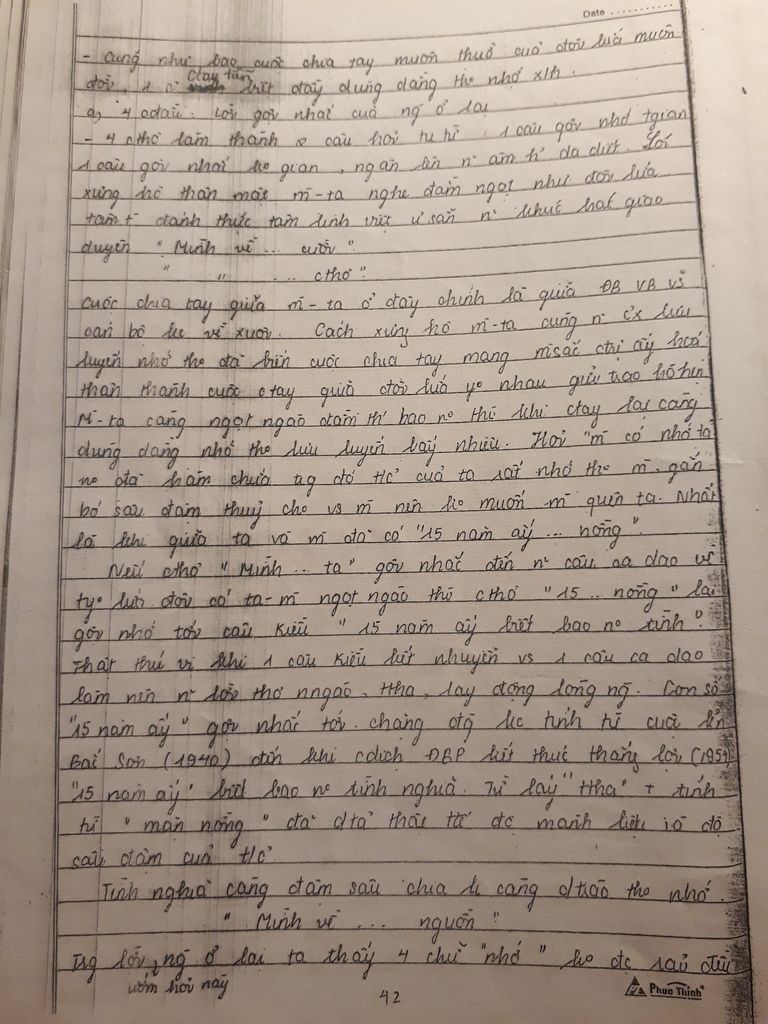 Date ..........
- cũng như bao cuộc chia tay muôn thuở của đôi lứa muôn
đời, 1 c chay tiễn biệt đầy dùng dằng tho nhớ xh.
a, 4 câu đầu: Lời gợi nhắc của ng ở lại
- 4 cthơ làm thành 2 câu hỏi tu từ 1 câu gợi nhớ tgian
1 câu gợi nhắc ko gian, ngân lên n~ âm h~ da diết. Lối
xưng hô thân mật m-ta nghe đằm ngọt như đôi lứa
tâm t~ đánh thức tâm linh việt vsẵn n~ khúc hát giao
duyên " Mình về ... cười "
" " ... cthơ "
cuộc chia tay giữa m-ta ở đây chính là giữa ĐB VB vs
cán bộ kc về xuôi. Cách xưng hô m-ta cùng n~ cx lưu
luyến nhớ tho đã biến cuộc chia tay mang msắc ctrị ấy hoá
thân thành cuộc ctay giữa đôi lứa yo nhau
M-ta càng ngọt ngào đằm thắ bao no thì khi ctay lại càng
dùng dằng nhớ tho lưu luyến bấy nhiêu. Hỏi "m có nhớ ta"
no đã hàm chứa trg đó t/c của ta rất nhớ tho m, gắn
bó sâu đậm thuỷ chg vs m nên ko muốn m quên ta. Nhất
là khi giữa ta và m đã có "15 năm ấy ... nồng".
Nếu cthơ " Mình .. ta" gợi nhắc đến n~ câu ca dao về
tyo lứa đôi có ta-m ngọt ngào thì cthơ "15 .. nồng" lại
gợi nhớ tới câu Kiều " 15 năm ấy biết bao no tình".
Thật thú vị khi 1 câu Kiều kết nhuyễn vs 1 câu ca dao
làm nên n~ lời thơ nngào, ttha, lay động lòng ng. Con số
"15 năm ấy" gợi nhắc tới chặng đg kc tính từ cuộc kn
Bắc Sơn (1940) đến khi cdịch ĐBP kết thúc thắng lợi (1954)
"15 năm ấy" biết bao no tình nghĩa. Từ láy "ttha" + tính
từ " mặn nồng " đã dtả thấu tđ đc mãnh liệt và độ
sâu đậm của t/c
Tình nghĩa càng đậm sâu chia li càng dtrào tho nhớ.
" Mình về ... nguồn "
Trg lời ướm hỏi này ng ở lại ta thấy 4 chữ "nhớ" ko đc rải đều
42
Phuc Thinh